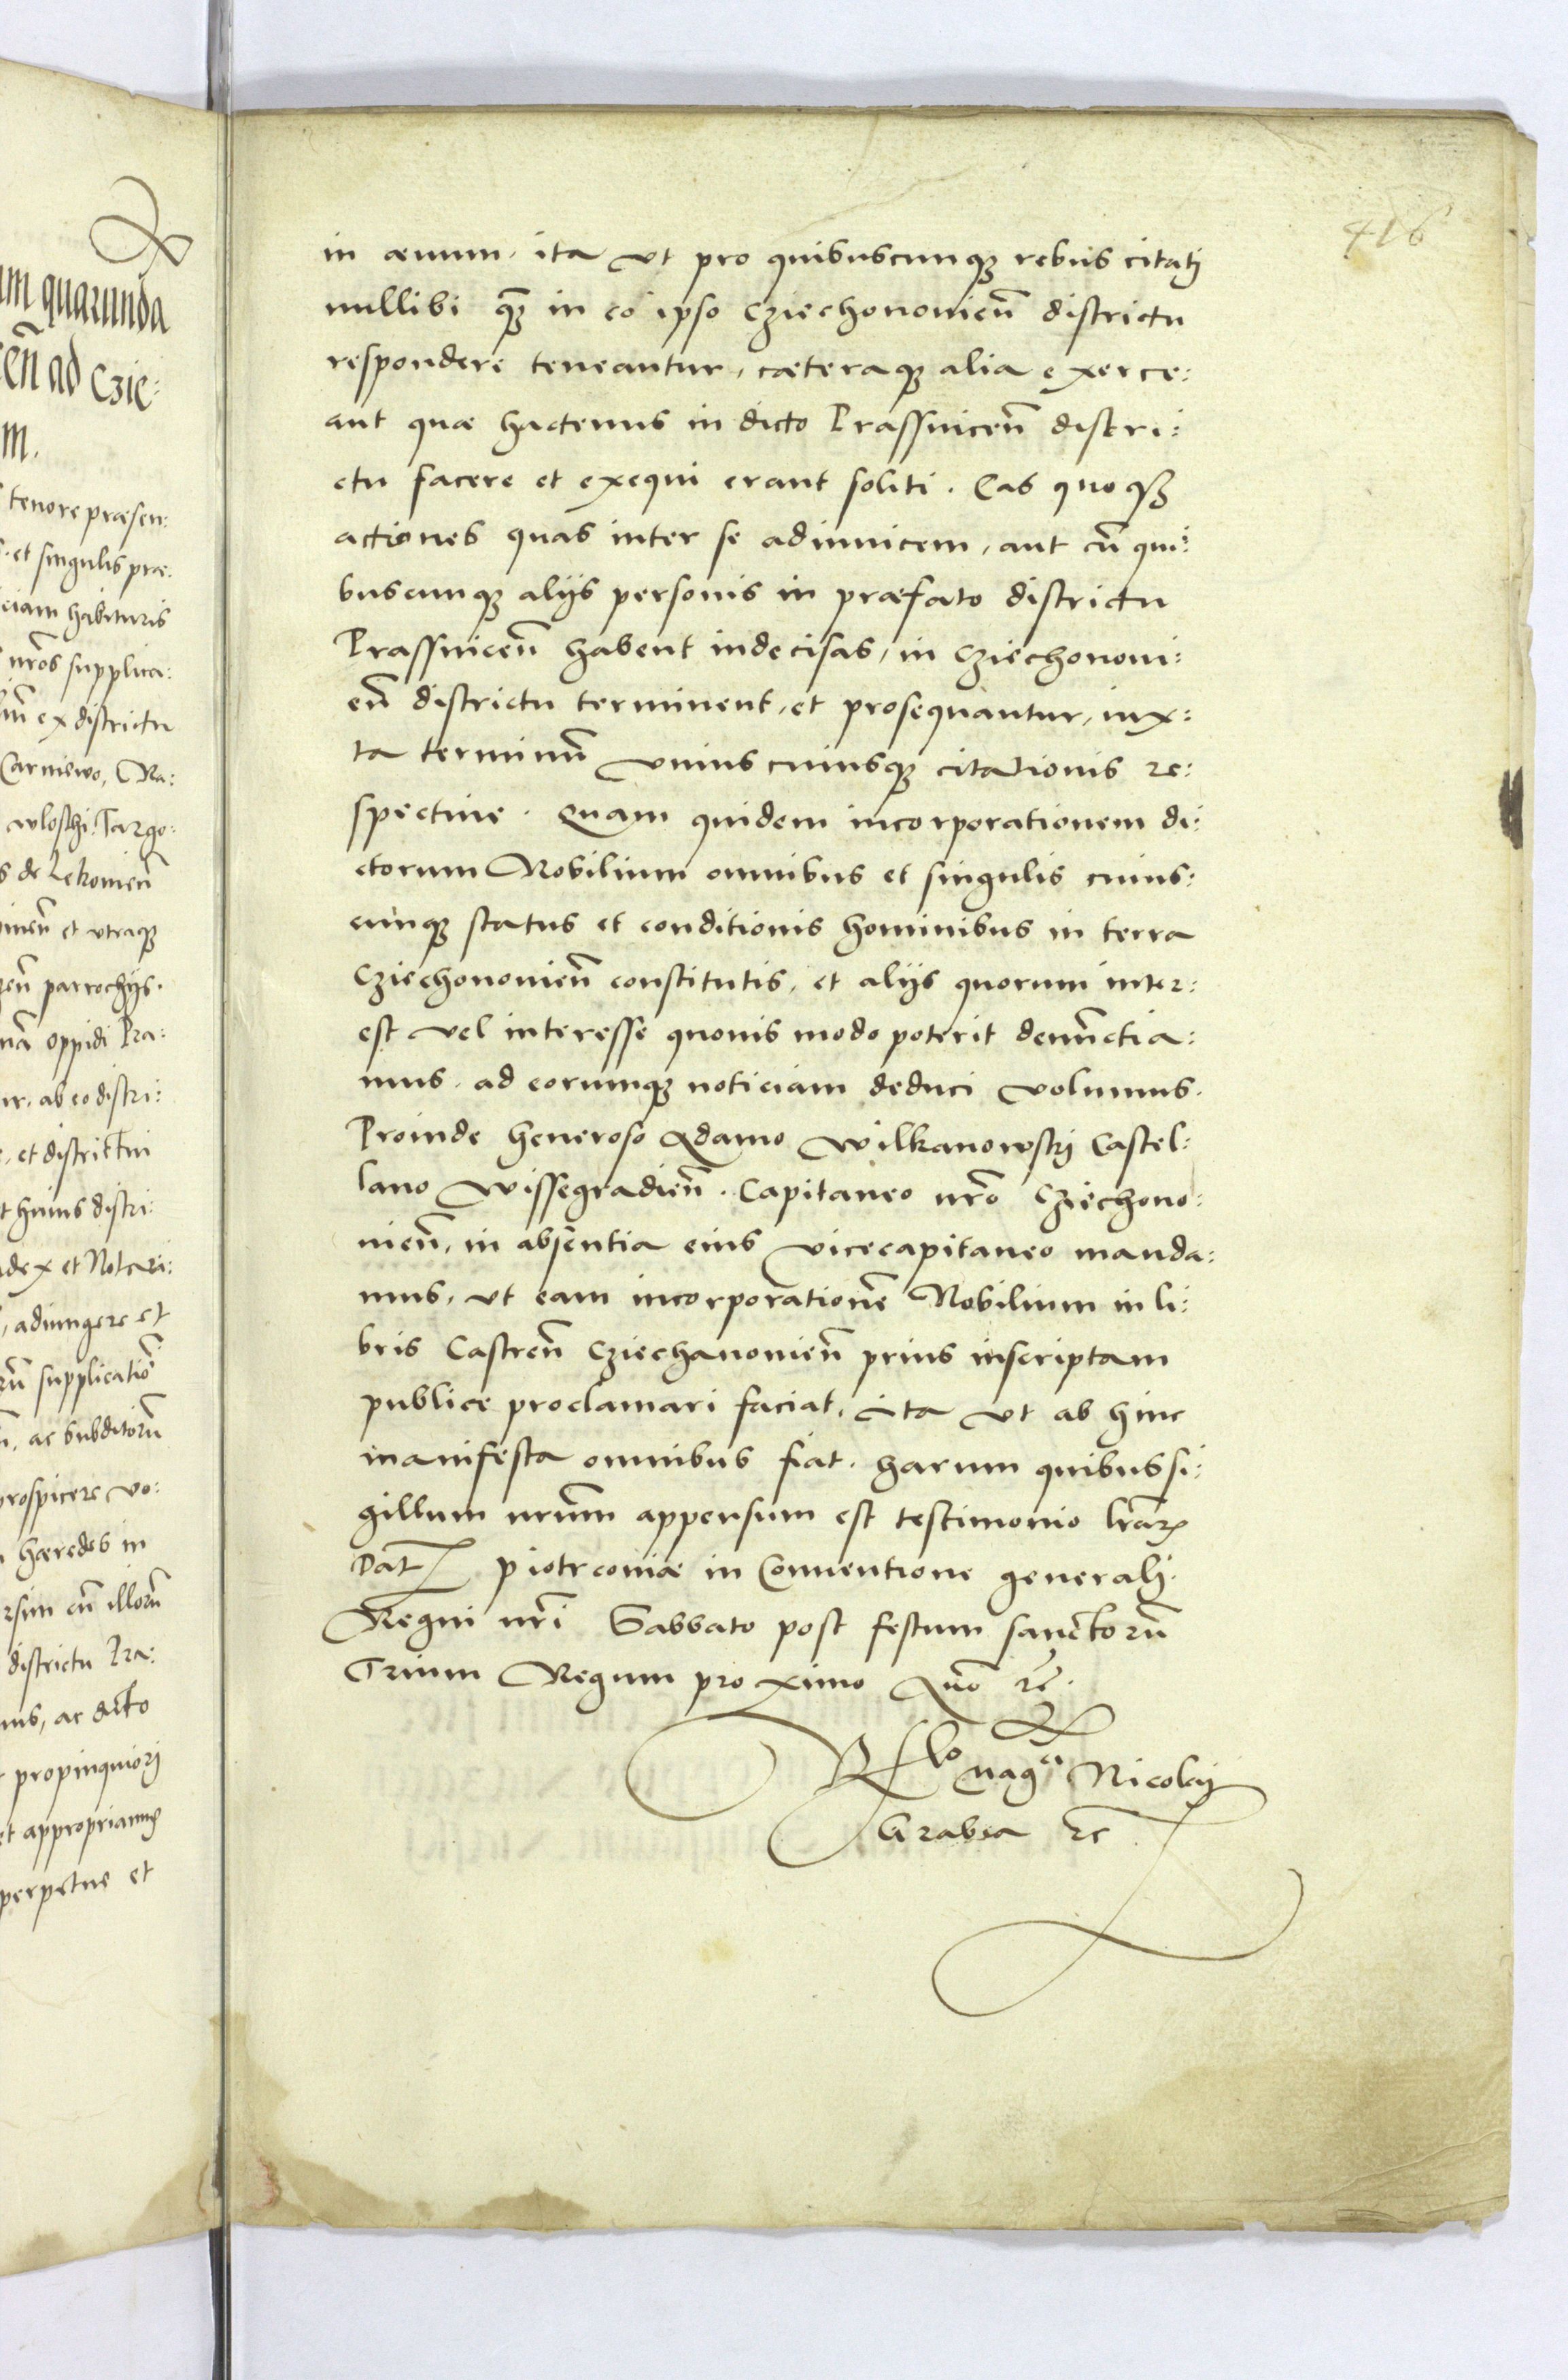 416
in æuum, ita vt pro quibuscunq₃ rebus citatj
nullibi q̃ꝫ in eo ipso Cziechonouieñ districtu
respondere teneantur, cæteraq₃ alia exerce:
ant quæ hactenus in dicto Prassniceñ distri:
ctu facere et exequi erant soliti. Eas quoq₃
actiones quas inter se adinuicem, aut cũ qui:
buscunq₃ alijs personis in præfato districtu
Prassniceñ habent indecisas, in Cziechonoui:
eñ districtu terminent, et prosequantur, iux:
ta terminũ vnius cuiusq₃ citationis re:
spectiue. Quam quidem incorporationem di:
ctorum Nobilium omnibus et singulis cuius:
cunq₃ status et conditionis hominibus in terra
Cziechonouieñ constitutis, et alijs quorum inter:
est vel interesse quouis modo poterit denũctia:
mus, ad eorumq₃ noticiam deduci volumus.
Proinde Generoso Adamo Wilkanowskj Castel:
lano Wissegradieñ. Capitaneo nr̃o Cziechono:
uieñ, in absentia eius vicecapitaneo manda:
mus, vt eam incorporationẽ Nobilium in li:
bris Castreñ Cziechanouieñ prius inscriptam
publice proclamari faciat, ita vt ab hinc
manifesta omnibus fiat. harum quibus si:
gillum nrũm appensum est testimonio lrãrꝫ
Datꝫ Piotrcouiæ in Conuentione generalj
Regni nr̃i Sabbato post festum sanctorũ
Trium Regum proximo Año rc̃.
Rlo mag^ci Nicolaj
Grabia rc̃
um quarunda
ceñ ad Czie:
m.
tenore præsen:
et singulis præ:
ciam habituris
nr̃os supplica:
ex districtu
Carniewo, Na:
wloschi. Targo:
s de Lekowieñ
et vtraq₃
parrochijs.
oppidi Pra:
ur, ab eo distri:
, et districtui
t huius distri:
dex et Notari:
, adiungere et
rũ supplicatiõ
, ac subditorũ
prospicere vo:
hæredes in
rsim cũ illorũ
districtu Præ:
mus, ac dicto
propinquiorj
et appropriamꝰ
perpetue et